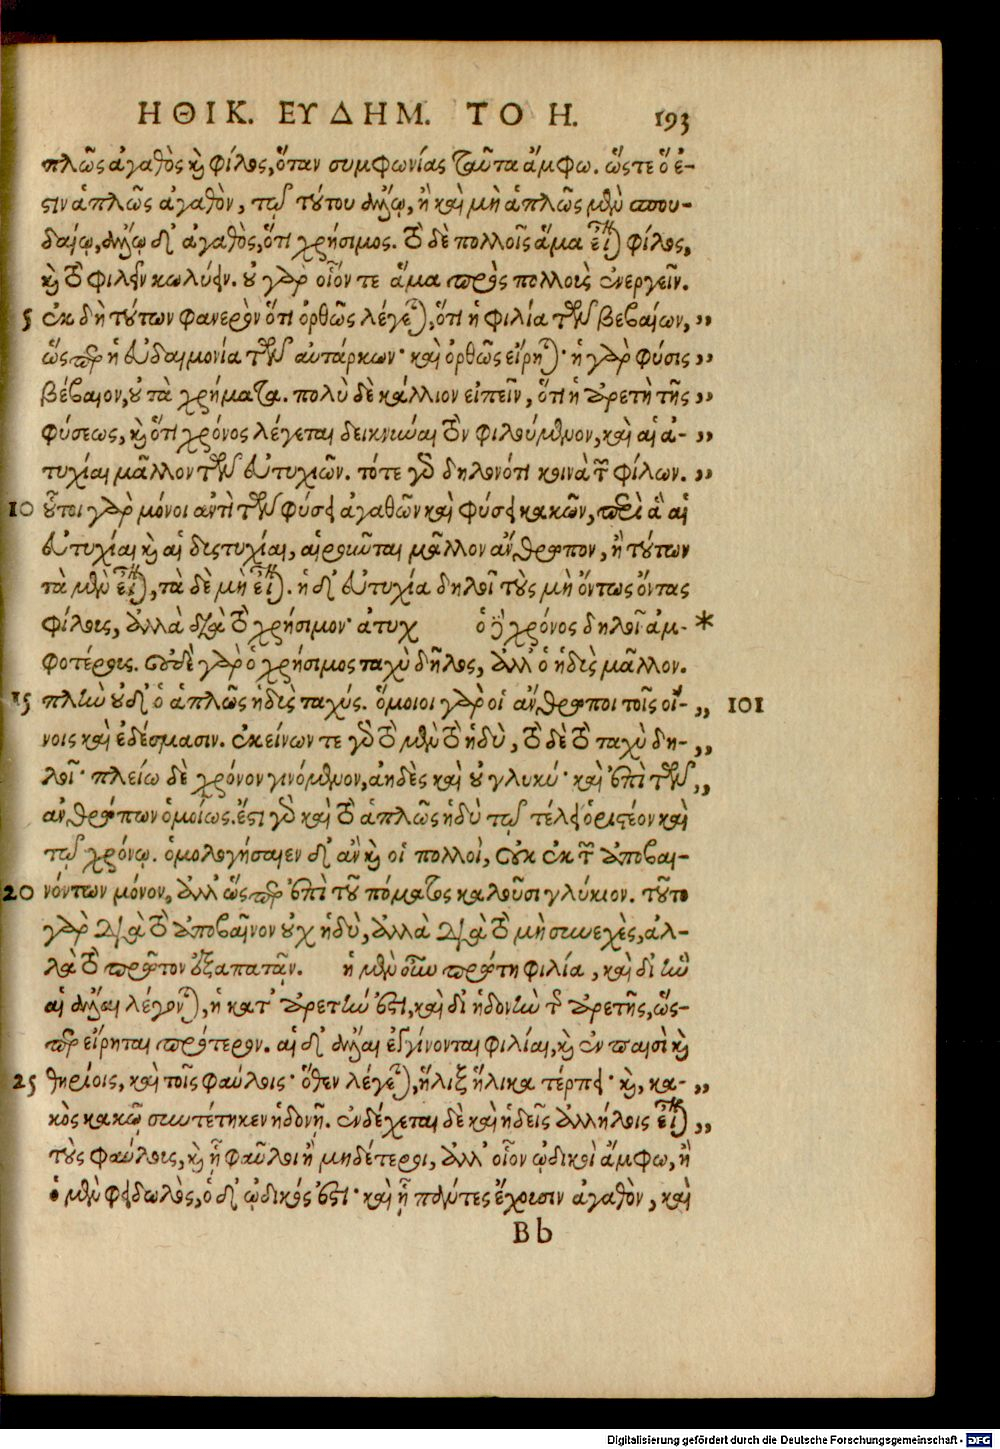 ΗΘΙΚ. ΕΥΔΗΜ. ΤΟ Η. 193
πλῶς ἀγαθὸς καὶ φίλος, ὅταν συμφωνίας ταῦτα ἄμφω. ὥστε ὅ ἐ-
στιν ἁπλῶς ἀγαθὸν, τῷ τούτου ἄλλῳ, ἢ καὶ μὴ ἁπλῶς μὲν σπου-
δαίῳ, ἄλλῳ δ' ἀγαθὸς, ὅτι χρήσιμος. τὸ δὲ πολλοῖς ἅμα εἶναι φίλος,
καὶ τὸ φιλεῖν κωλύειν. οὐ γὰρ οἷόν τε ἅμα πρὸς πολλοὺς ἐνεργεῖν.
5 ἐκ δὴ τούτων φανερὸν ὅτι ὀρθῶς λέγεται, ὅτι ἡ φιλία τῶν βεβαίων, ,,
ὥσπερ ἡ εὐδαιμονία τῶν αὐτάρκων· καὶ ὀρθῶς εἴρηται· ἡ γὰρ φύσις ,,
βέβαιον, οὐ τὰ χρήματα. πολὺ δὲ κάλλιον εἰπεῖν, ὅτι ἡ ἀρετὴ τῆς ,,
φύσεως, καὶ ὅτι χρόνος λέγεται δεικνύναι τὸν φιλούμενον, καὶ αἱ ἀ- ,,
τυχίαι μᾶλλον τῶν εὐτυχιῶν. τότε γὰρ δηλονότι κοινὰ τὰ τῶν φίλων. ,,
10 οὗτοι γὰρ μόνοι ἀντὶ τῶν φύσει ἀγαθῶν καὶ φύσει κακῶν, περὶ ἃ αἱ
εὐτυχίαι καὶ αἱ δυστυχίαι, αἱροῦνται μᾶλλον ἄνθρωπον, ἢ τούτων
τὰ μὲν εἶναι, τὰ δὲ μὴ εἶναι. ἡ δ' εὐτυχία δηλοῖ τοὺς μὴ ὄντως ὄντας
φίλους, ἀλλὰ διὰ τὸ χρήσιμον· ἀτυχ ὁ δὲ χρόνος δηλοῖ ἀμ- *
φοτέρους. οὐδὲ γὰρ ὁ χρήσιμος ταχὺ δῆλος, ἀλλ' ὁ ἡδὺς μᾶλλον.
15 πλὴν οὐδ' ὁ ἁπλῶς ἡδὺς ταχύς. ὅμοιοι γὰρ οἱ ἄνθρωποι τοῖς οἴ- ,, 101
νοις καὶ ἐδέσμασιν. ἐκείνων τε γὰρ τὸ μὲν τὸ ἡδὺ, τὸ δὲ τὸ ταχὺ δη- ,,
λοῖ· πλείω δὲ χρόνον γινόμενον, ἀηδὲς καὶ οὐ γλυκύ· καὶ ἐπὶ τῶν ,,
ἀνθρώπων ὁμοίως. ἔστι γὰρ καὶ τὸ ἁπλῶς ἡδὺ τῷ τέλει ὁριστέον καὶ
τῷ χρόνῳ. ὁμολογήσαιεν δ' ἂν καὶ οἱ πολλοὶ, οὐκ ἐκ τῶν ἀποβαι-
20 νόντων μόνον, ἀλλ' ὥσπερ ἐπὶ τοῦ πόματος καλοῦσι γλύκιον. τοῦτο
γὰρ διὰ τὸ ἀποβαῖνον οὐχ ἡδὺ, ἀλλὰ διὰ τὸ μὴ συνεχὲς, ἀλ-
λὰ τὸ πρῶτον ἐξαπατᾷν. ἡ μὲν οὖν πρώτη φιλία, καὶ δι' ἣν
αἱ ἄλλαι λέγονται, ἡ κατ' ἀρετήν ἐστι, καὶ δι' ἡδονὴν τὴν ἀρετῆς, ὥσ-
περ εἴρηται πρότερον. αἱ δ' ἄλλαι ἐγγίνονται φιλίαι, καὶ ἐν παισὶ καὶ
25 θηρίοις, καὶ τοῖς φαύλοις· ὅθεν λέγεται, ἥλιξ ἥλικα τέρπει· καὶ, κα- ,,
κὸς κακῷ συντέτηκεν ἡδονῇ. ἐνδέχεται δὲ καὶ ἡδεῖς ἀλλήλοις εἶναι ,,
τοὺς φαύλους, καὶ ᾗ φαῦλοι ἢ μηδέτεροι, ἀλλ' οἷον ᾠδικοὶ ἄμφω, ἢ
ὁ μὲν φιλῳδὸς, ὁ δ' ᾠδικός ἐστι· καὶ ᾗ πάντες ἔχουσιν ἀγαθὸν, καὶ
Bb
Digitalisierung gefördert durch die Deutsche Forschungsgemeinschaft - DFG